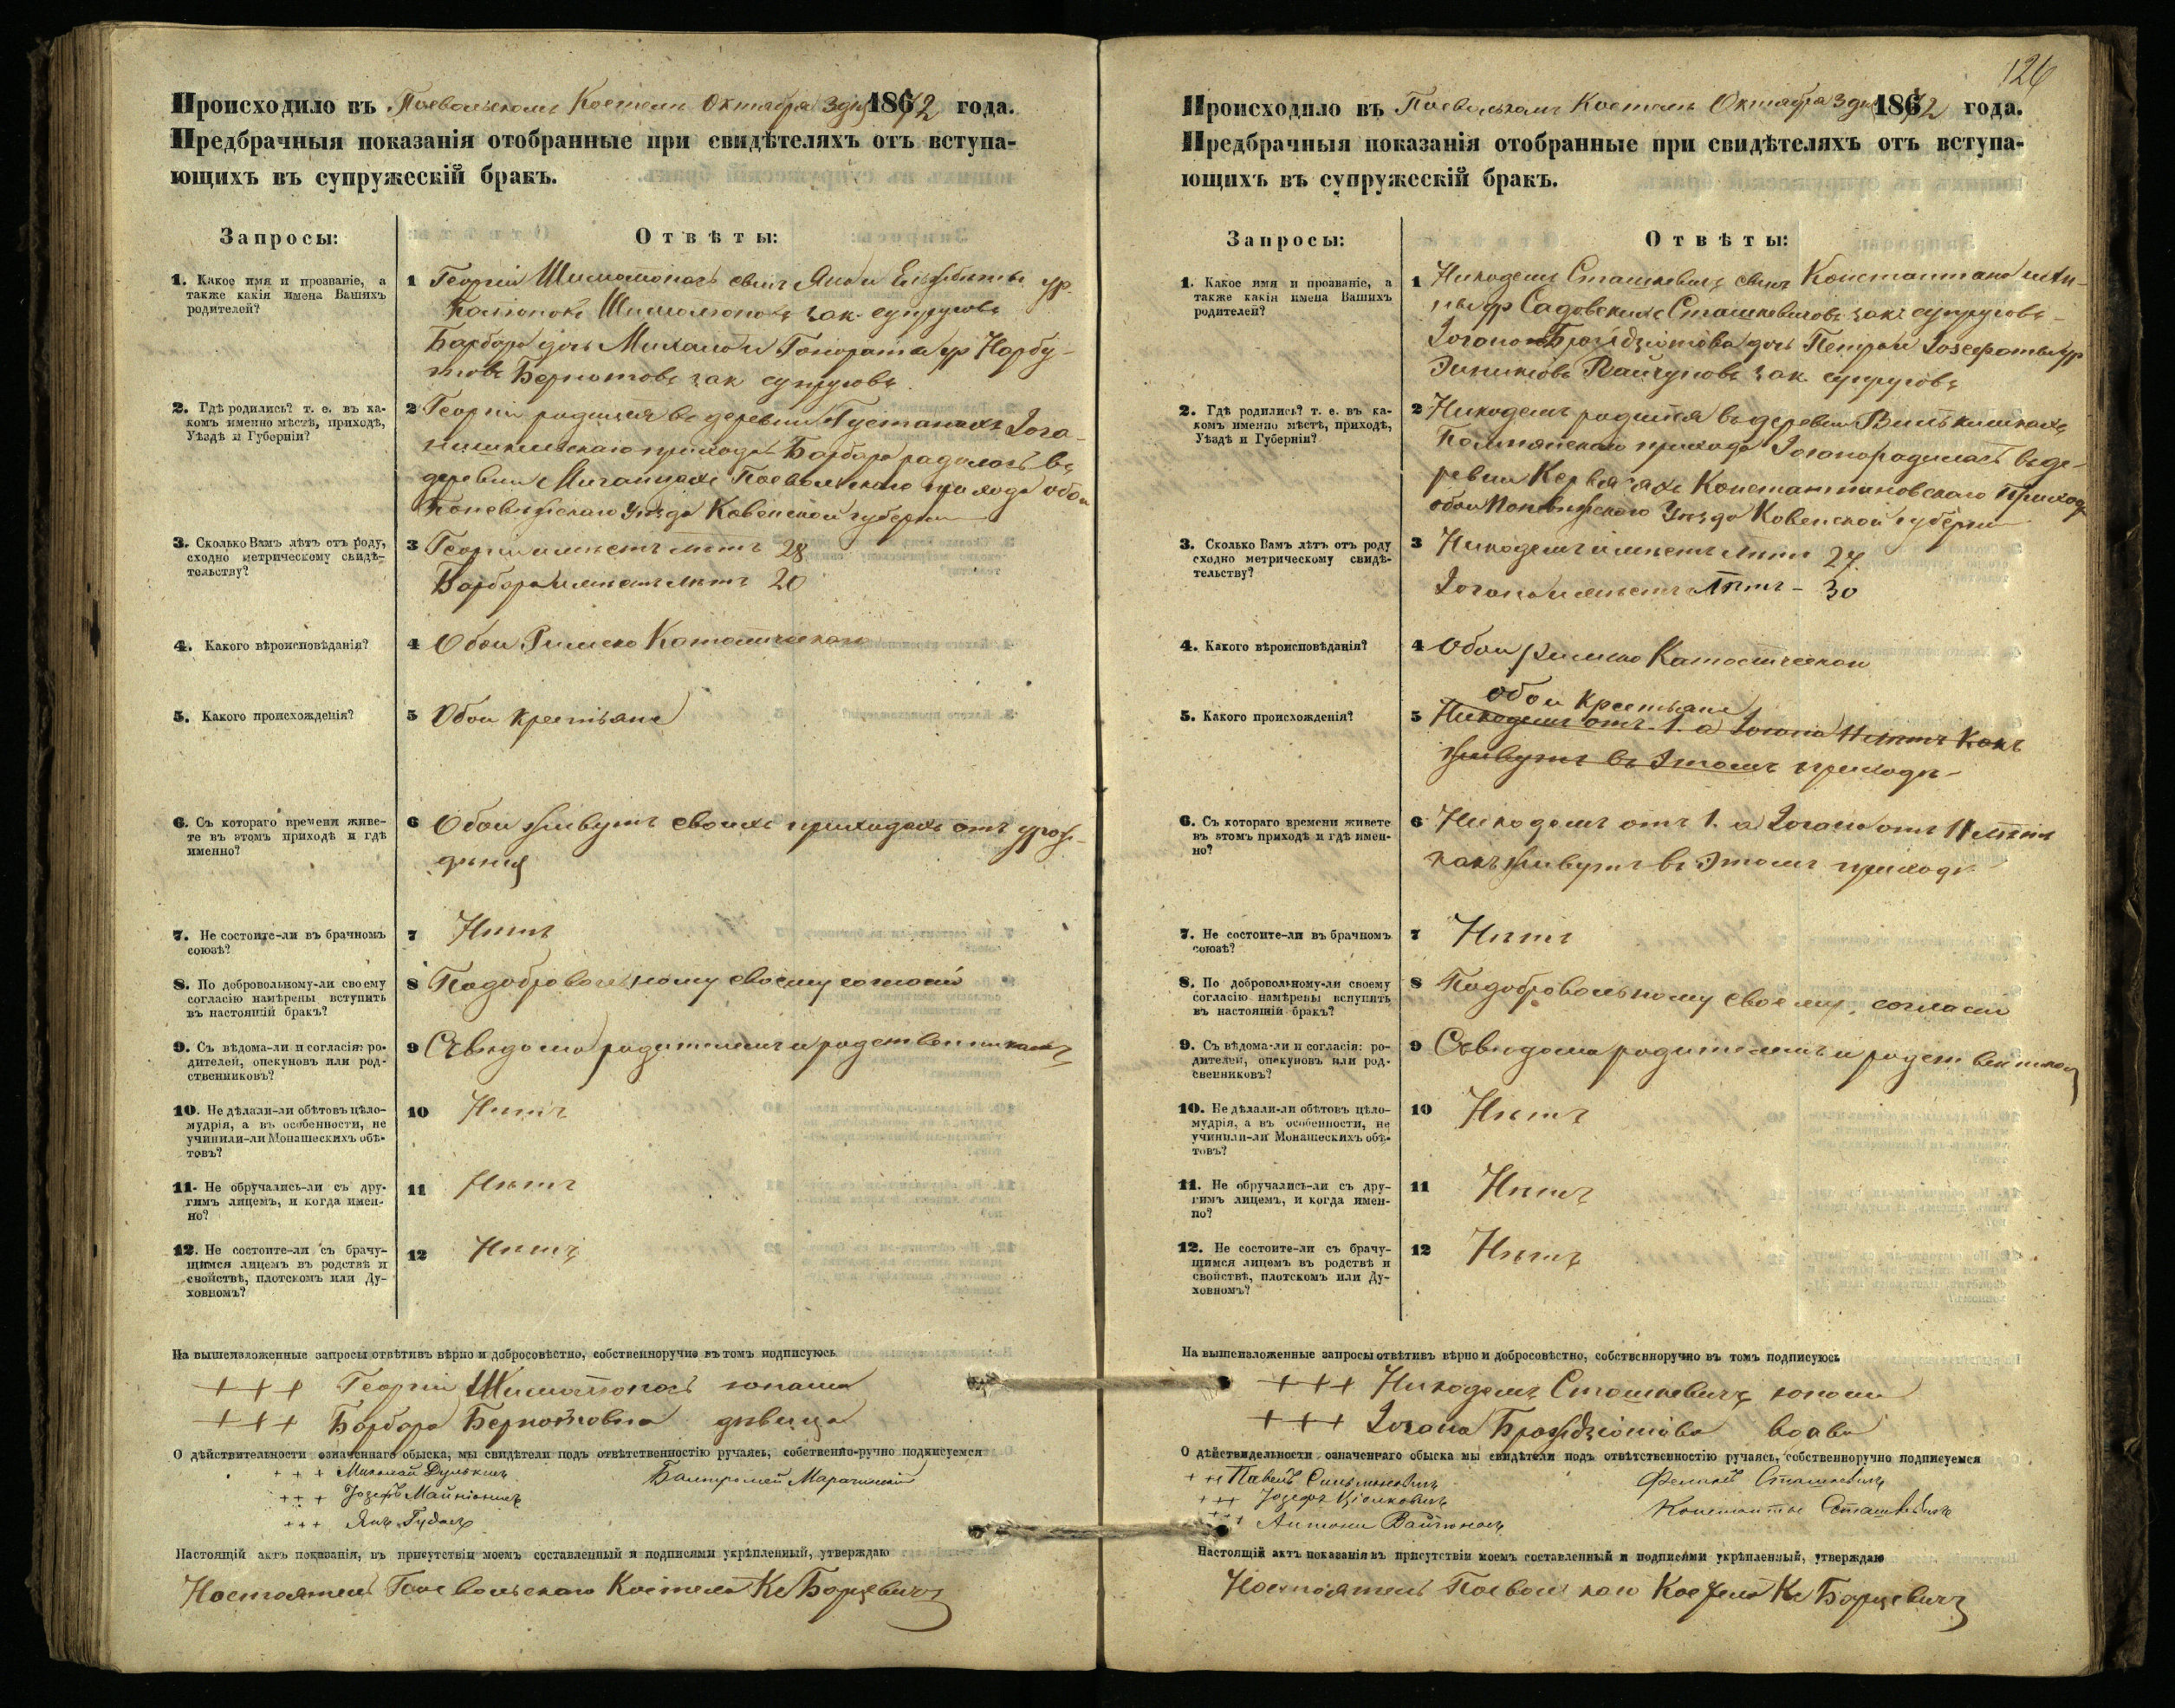 Происходило въ Поевольскомъ Костелѣ Октября 3 дня 1862 года.
Предбрачныя показанія отобранные при свидѣтеляхъ отъ вступа-
ющихъ въ супружескій бракъ.
Запросы:
Отвѣты:
1. Какое имя и прозваніе, а
также какія имена Вашихъ
родителей?
1 Георгій сынъ Яна и Ельжбеты ур.
зак. супруговъ
Барбара дочь Михала и Гонората ур Нарбу-
товъ Бернатовъ зак супруговъ
2. Гдѣ родились? т. е. въ ка-
комъ именно мѣстѣ, приходѣ,
Уѣздѣ и Губерніи?
2 Георгій родился въ деревни
прихода Барбара родилась въ
деревни Поевольскаго прихода обои
Поневѣжскаго уѣзда Ковенской губерни
3. Сколько Вамъ лѣтъ отъ роду,
сходно метрическому свидѣ-
тельству?
3 Георгій имѣетъ лѣтъ 28
Барбара имѣетъ лѣтъ 20
4. Какого вѣроисповѣданія?
4 Обои Римско Католическаго
5. Какого происхожденія?
5 Обои крестьяне
6. Съ котораго времени живе-
те въ этомъ приходѣ и гдѣ
именно?
6 Обои живутъ своихъ приходахъ отъ урож-
дѣнія
7. Не состоите-ли въ брачномъ
союзѣ?
7 Нѣтъ
8. По добровольному-ли своему
согласію намѣрены вступить
въ настоящій бракъ?
8 Подобровольному своему согласій
9. Съ вѣдома-ли и согласія: ро-
дителей, опекуновъ или род-
ственниковъ?
9 Свѣдома родителемъ и родственникамъ
10. Не дѣлали-ли обѣтовъ цѣло-
мудрія, а въ особенности, не
учинили-ли Монашескихъ обѣ-
товъ?
10 Нѣтъ
11. Не обручались-ли съ дру-
гимъ лицемъ, и когда имен-
но?
11 Нѣтъ
12. Не состоите-ли съ брачу-
щимся лицемъ въ родствѣ и
свойствѣ, плотскомъ или Ду-
ховномъ?
12 Нѣтъ
На вышеизложенные запросы отвѣтивъ вѣрно и добросовѣстно, собственноручно въ томъ подписуюсь
+++ Георгій юноша
+++ Барбара Бернатовна дѣвица
О дѣйствительности означеннаго обыска, мы свидѣтели подъ отвѣтственностію ручаясь, собственно-ручно подписуемся
+++ Миколай
+++ Іозефъ
+++ Янъ
Настоящій актъ показанія, въ присутствіи моемъ составленный и подписями укрѣпленный, утверждаю
Настоятель Поевольскаго Костела Кс Борцевичъ
126
Происходило въ Поевольскомъ Костелѣ Октября 3 дня 1862 года.
Предбрачныя показанія отобранные при свидѣтеляхъ отъ вступа-
ющихъ въ супружескій бракъ.
Запросы:
Отвѣты:
1. Какое имя и прозваніе, а
также какія имена Вашихъ
родителей?
1 Никодемъ Сташкевичъ сынъ Константана и Ан-
ны ур Садовскихъ Сташкевичовъ зак супруговъ
Іогана дочь Петра и Іозефаты ур
зак. супруговъ
2. Гдѣ родились? т. е. въ ка-
комъ именно мѣстѣ, приходѣ,
Уѣздѣ и Губерніи?
2 Никодемъ родился въ деревни
прихода Іогана родилась въ де-
ревни Константиновскаго прихода
обои Поневѣжскаго Уѣзда Ковенской губерни
3. Сколько Вамъ лѣтъ отъ роду
сходно метрическому свидѣ-
тельству?
3 Никодемъ имѣетъ лѣтъ 27
Іогана имѣетъ лѣтъ - 30
4. Какого вѣроисповѣданія?
4 Обои римско Католической
5. Какого происхожденія?
обои крестьяне
5 Никодемъ отъ 1. а Іогана 11 лѣтъ какъ
живутъ въ Этомъ приходѣ
6. Съ котораго времени живете
въ этомъ приходѣ и гдѣ имен-
но?
6 Никодемъ отъ 1. а Іогана отъ 11 лѣтъ
какъ живутъ въ Этомъ приходѣ
7. Не состоите-ли въ брачномъ
союзѣ?
7 Нѣтъ
8. По добровольному-ли своему
согласію намѣрены вступить
въ настоящій бракъ?
8 Подобровольному своему согласій
9. Съ вѣдома-ли и согласія: ро-
дителей, опекуновъ или род-
свенниковъ?
9 Свѣдома родителемъ и
10. Не дѣлали-ли обѣтовъ цѣло-
мудрія, а въ особенности, не
учинили-ли Монашескихъ обѣ-
товъ?
10 Нѣтъ
11. Не обручались-ли съ дру-
гимъ лицемъ, и когда имен-
но?
11 Нѣтъ
12. Не состоите-ли съ брачу-
щимся лицемъ въ родствѣ и
свойствѣ, плотскомъ или Ду-
ховномъ?
12 Нѣтъ
На вышеизложенные запросы отвѣтивъ вѣрно и добросовѣстно, собственноручно въ томъ подписуюсь
+++ Никодемъ Сташкевичъ юноша
+++ Іогана вдова
О дѣйствидельности означеннаго обыска мы свидѣтели подъ отвѣтственностію ручаясь, собственноручно подписуемся
+++ Павелъ
+++ Іозефъ
+++ Антони
Константы Сташкевичъ
Настоящій актъ показанія въ присутствіи моемъ составленный и подписями укрѣпленный, утверждаю
Настоятель Поевольскаго Костела Кс Борцевичъ